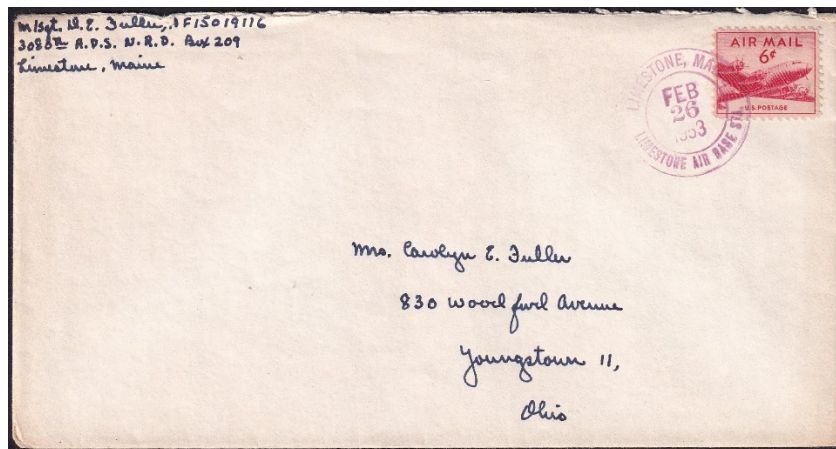 M/Sgt. D. E. Fuller, AF15019116
3080th A.D.S. N.R.D. Box 209
Limestone, Maine
AIR MAIL
6¢
U.S. POSTAGE
LIMESTONE, MA
FEB
26
1953
LIMESTONE AIR BASE STA.
Mrs. Carolyn E. Fuller
830 Woodford Avenue
Youngstown 11,
Ohio